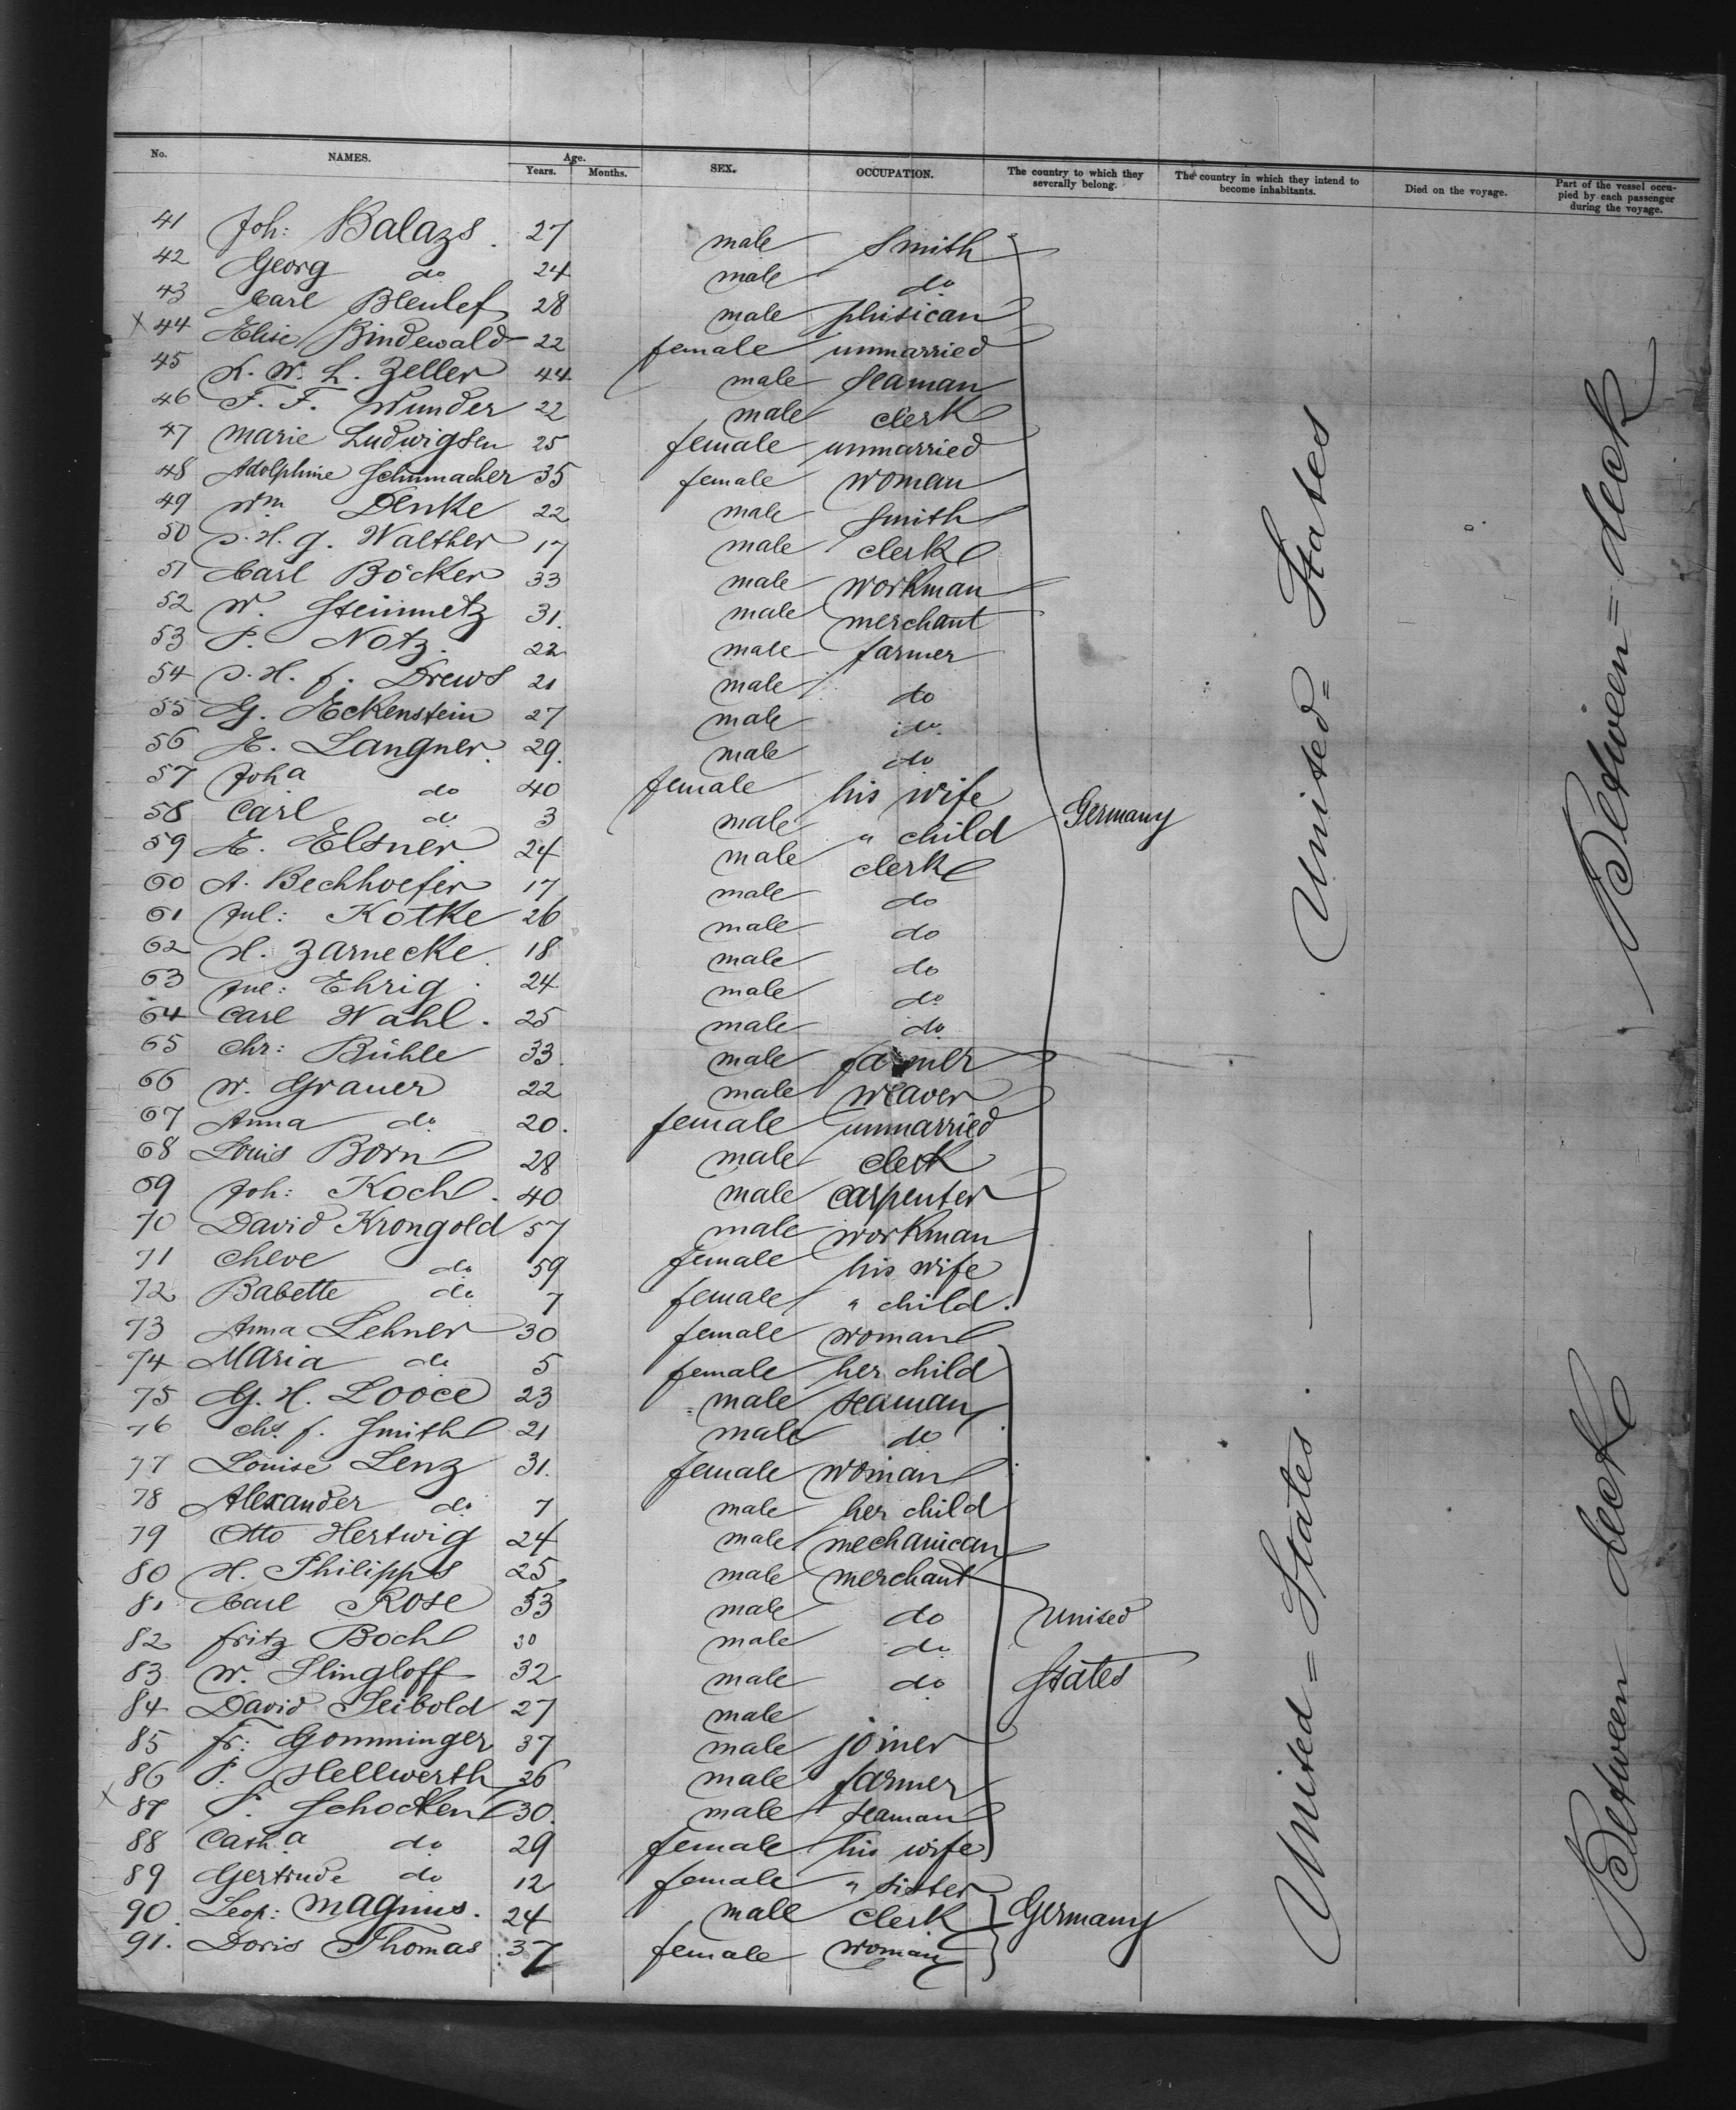 No. NAMES. Age. Years. Months. SEX. OCCUPATION. The country to which they severally belong. The country in which they intend to become inhabitants. Died on the voyage. Part of the vessel occupied by each passenger during the voyage.
41 Joh: Balazs. 27 male Smith
42 Georg do 24 male do
43 Carl 28 male phisican
44 Elise Bindewald 22 female unmarried
45 H. W. L. Zeller 44 male seaman
46 F. F. Wunder 22 male clerk
47 Marie Ludwigsen 25 female unmarried
48 Adolphine Schumacher 35 female woman
49 Wm Denke 22 male Smith
50 Walther 17 male clerk
51 Carl Böcker 33 male workman
52 W. Steinmetz 31. male merchant
53 P. Notz. 22 male farmer
54 Drews 21 male do
55 G. Eckenstein 27 male do
56 E. Langner. 29. male do
57 Joha do 40 female his wife
58 Carl do 3 male " child Germany
59 E. Elsner. 24 male clerk
60 A. Bechhoefer 17 male do
61 Jul: Kotke 26 male do
62 H. Zarnecke. 18 male do
63 Jul: Ehrig. 24 male do
64 Carl Wahl. 25 male do
65 Chr: Bühle 33. male farmer
66 W. Grauer 22 male weaver
67 Anna do 20. female unmarried
68 Louis Born 28 male clerk
69 Joh: Koch. 40 male carpenter
70 David Krongold 57 male workman
71 Cheve do 59 female his wife
72 Babette do 7 female " child.
73 Anna Lehner 30 female woman
74 Maria do 5 female her child
75 G. H. Looce 23 male seaman
76 Chs. J. Smith 21 male do
77 Louise Lenz 31. female woman
78 Alexander do 7 male her child
79 Otto Hertwig 24 male mechanican
80 H. Philipps 25 male merchant
81 Carl Rose 53 male do United
82 Fritz Boch 30 male do
83 W. Slingloff 32 male do States
84 David Seibold 27 male
85 Fr: Gomminger 37 male joiner
86 P. Hellwerth 26 male farmer
87 F. Schocken 30. male seaman
88 Catha do 29 female his wife
89 Gertrude do 12 female " sister
90. Leop: Magnus. 24 male clerk Germany
91. Doris Thomas. 37 female woman
United = States
Between = deck
United = States.
Between deck